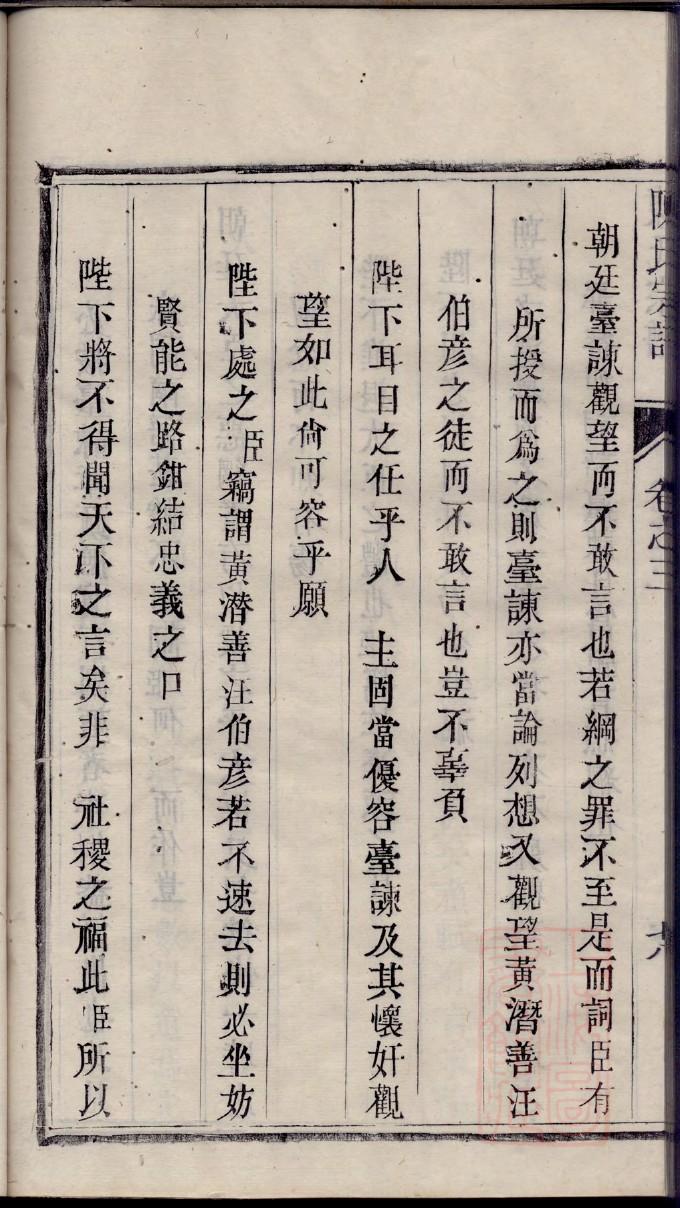 陳氏宗譜 卷之三
朝廷臺諫觀望而不敢言也若綱之罪不至是而詞臣有
所授而爲之則臺諫亦當論列想又觀望黃潛善汪
伯彥之徒而不敢言也豈不辜負
陛下耳目之任乎人 主固當優容臺諫及其懷奸觀
望如此尙可容乎願
陛下處之臣竊謂黃潛善汪伯彥若不速去則必坐妨
賢能之路鉗結忠義之口
陛下將不得聞天下之言矣非 社稷之福此臣所以